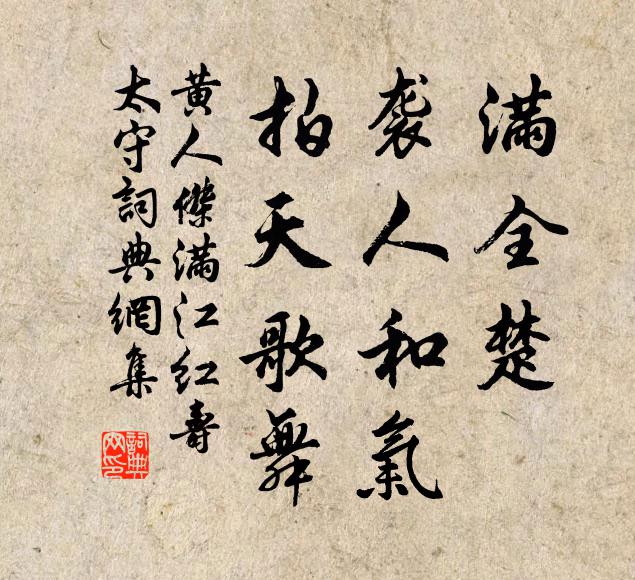 滿全楚
袭人和氣
拍天歌舞
黄人傑滿江红壽
太守詞典網集
詞典网印